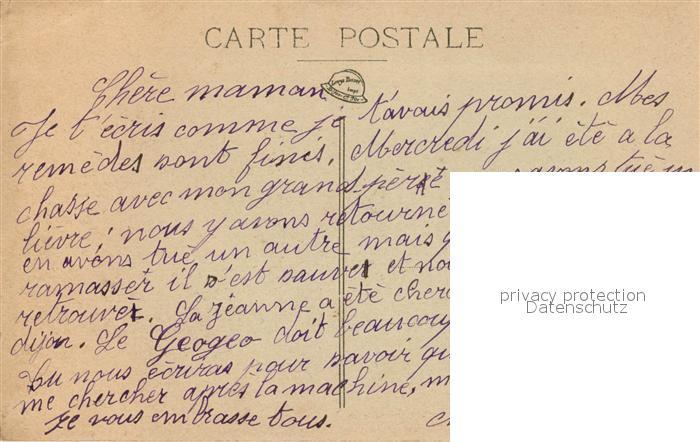 CARTE POSTALE
Chère maman
Je t'écris comme je t'avais promis. Mes
remèdes sont finis. Mercredi j'ai été a la
chasse avec mon grand père avons tué un
lièvre; nous y avons retourné
en avons tué un autre mais
ramasser il s'est sauver et
retrouver. La jeanne a été
dijon. Le Geogeo doit
Tu nous écriras pour savoir
me chercher après la machine,
Je vous embrasse tous.
privacy protection
Datenschutz